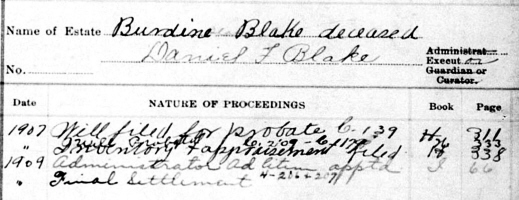 Name of Estate Burdine Blake deceased
Daniel F Blake
No.
Administrat
Execut or
Guardian or
Curator.
Date NATURE OF PROCEEDINGS Book Page
1907 Will filed for probate C. 139 H 311
C. 209 - C 179 76 333
" Inventory & appraisement filed 338
1909 Administrator Ad litem apptd J 66
" Final Settlement 4-206 + 207